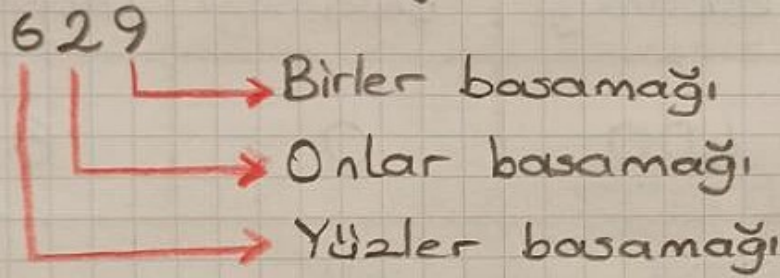 629
Birler basamağı
Onlar basamağı
Yüzler basamağı